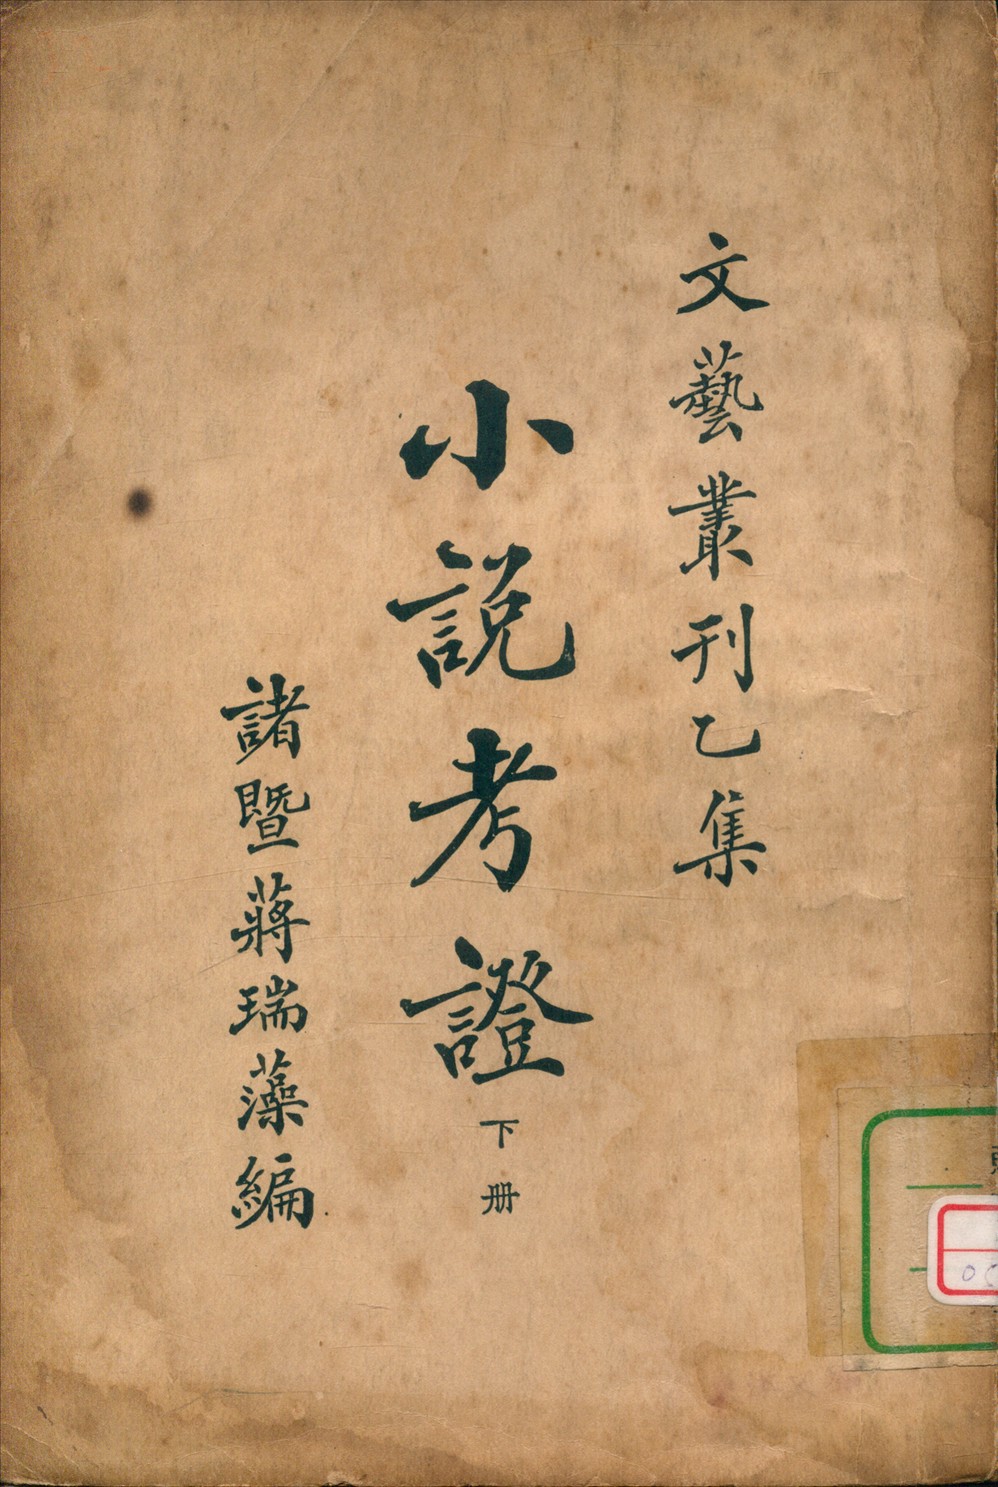 文藝叢刊乙集
小說考證
下册
諸暨蔣瑞藻編